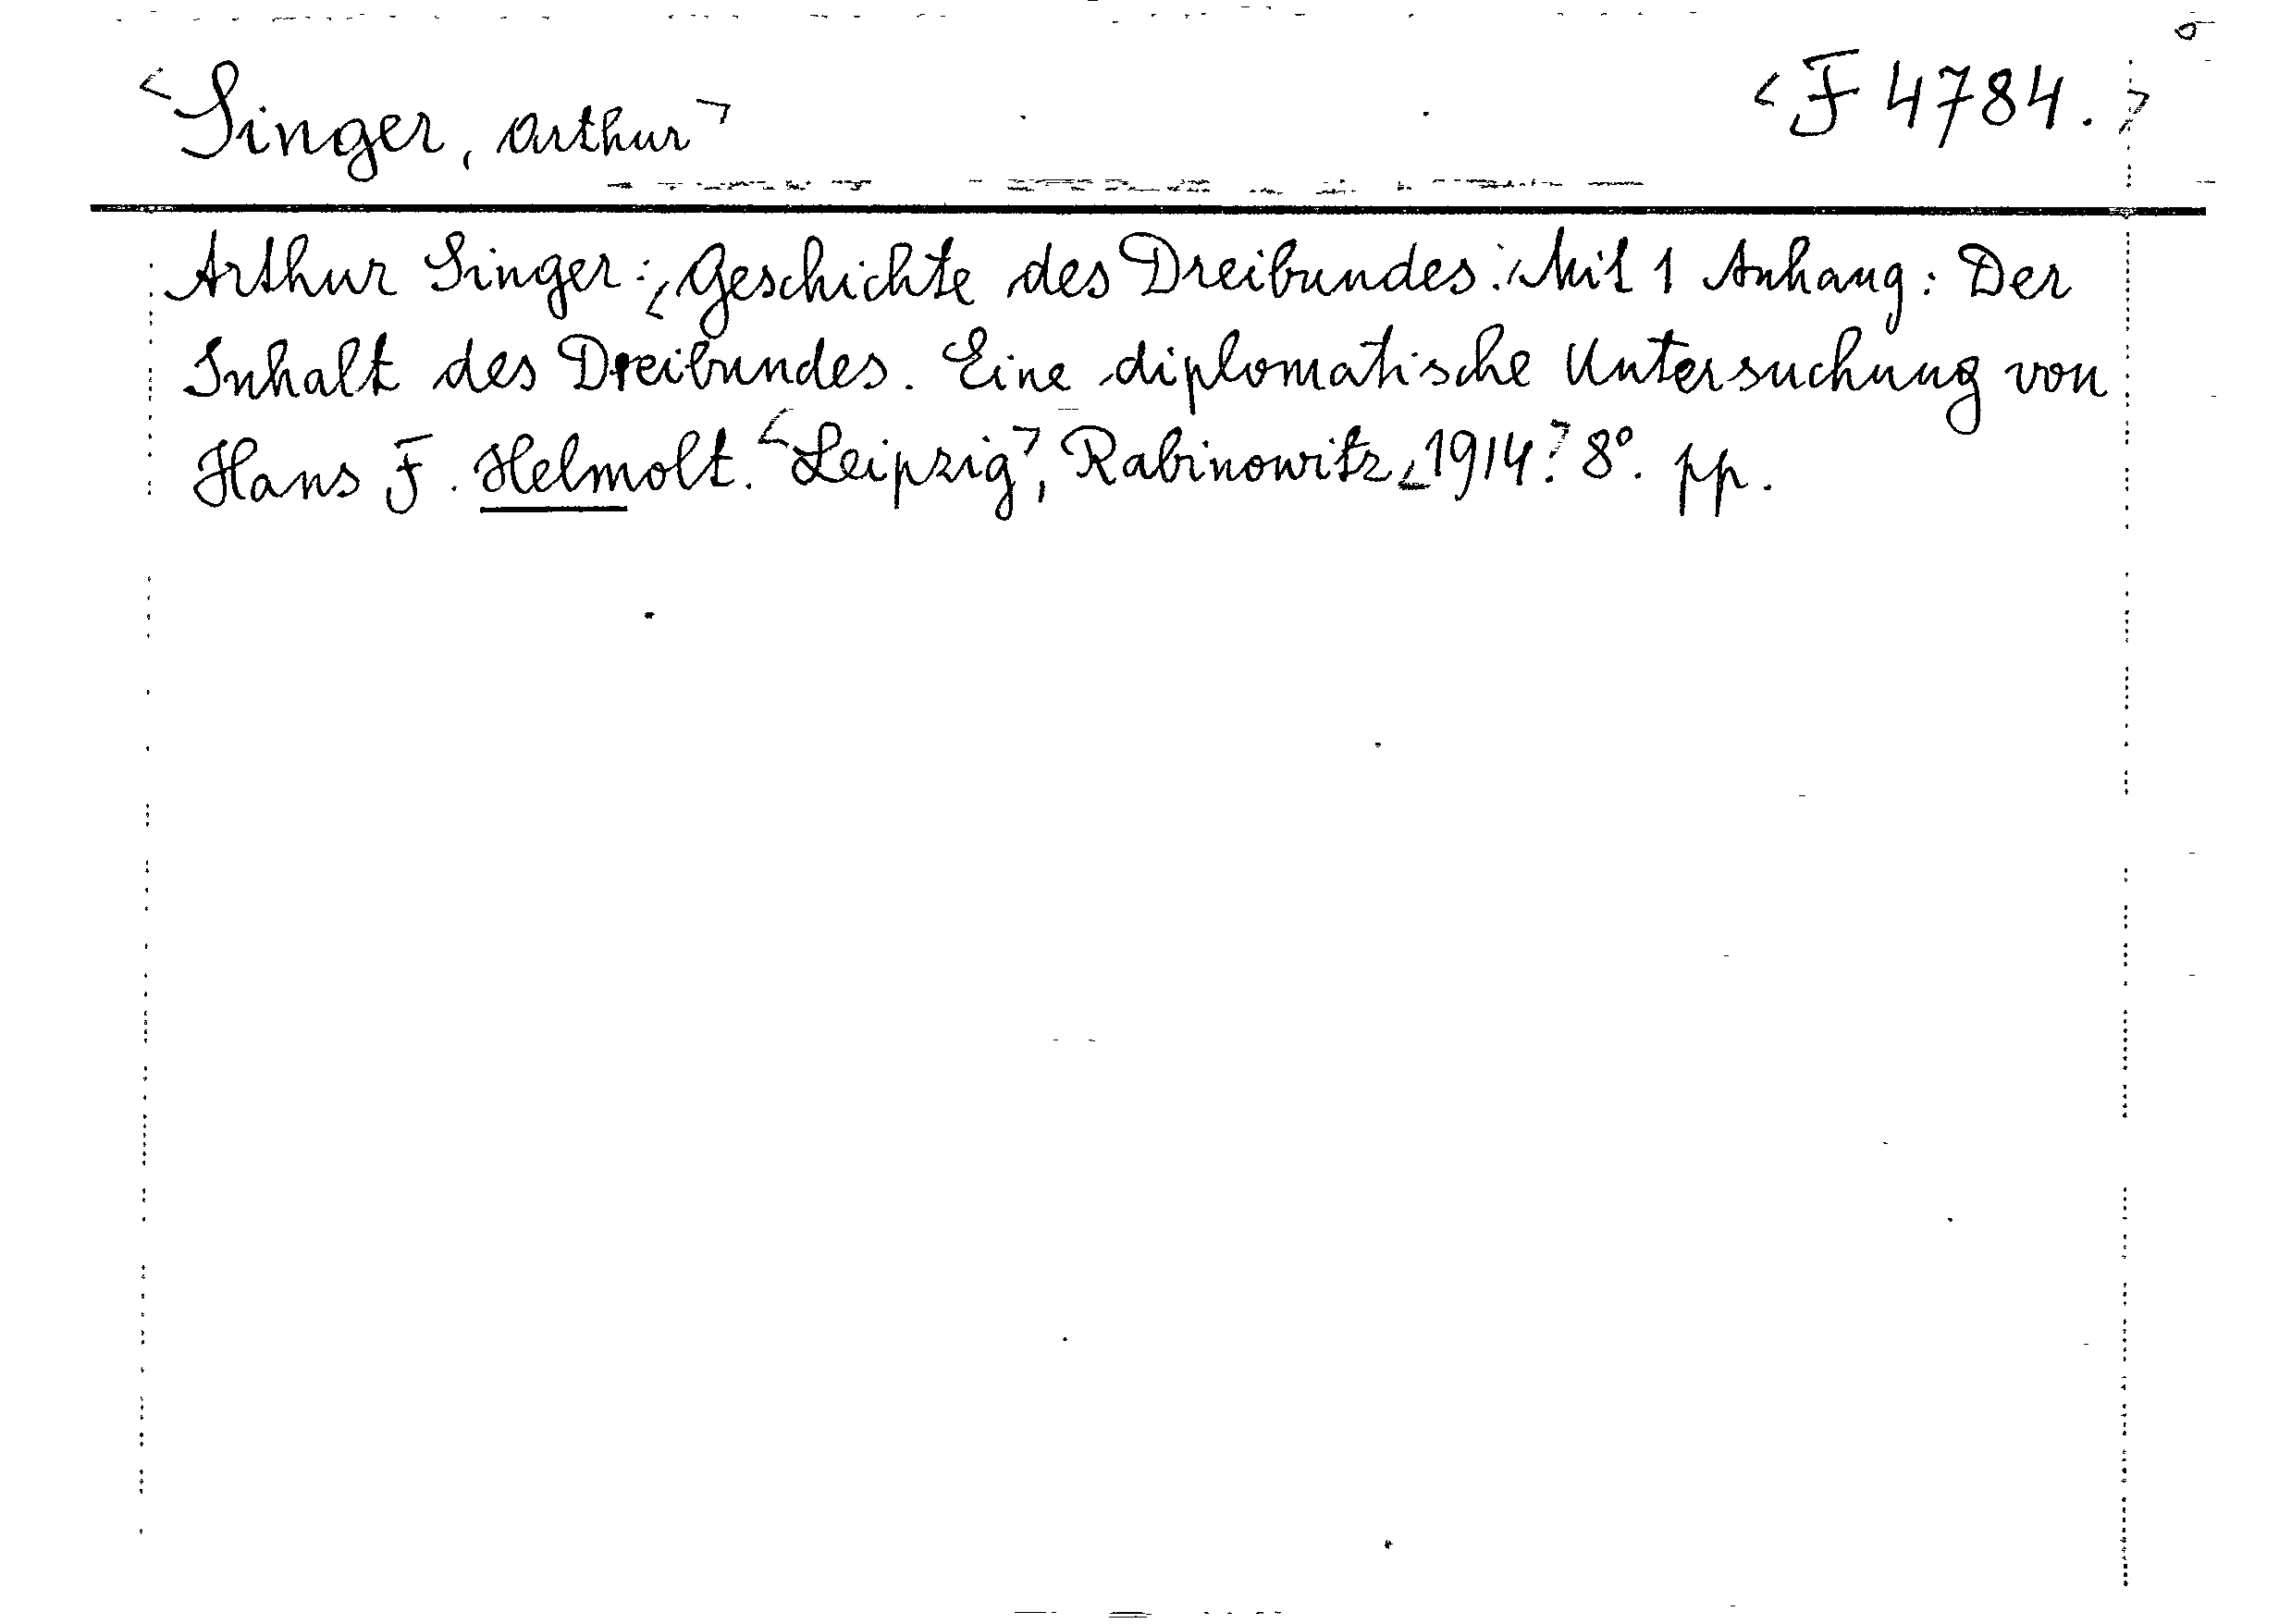 <Singer, Arthur> <F 4784.>
Arthur Singer: <Geschichte des Dreibundes.> Mit 1 Anhang: Der
Inhalt des Dreibundes. Eine diplomatische Untersuchung von
Hans F. Helmolt. <Leipzig>, Rabinowitz <1914.> 8°. pp.